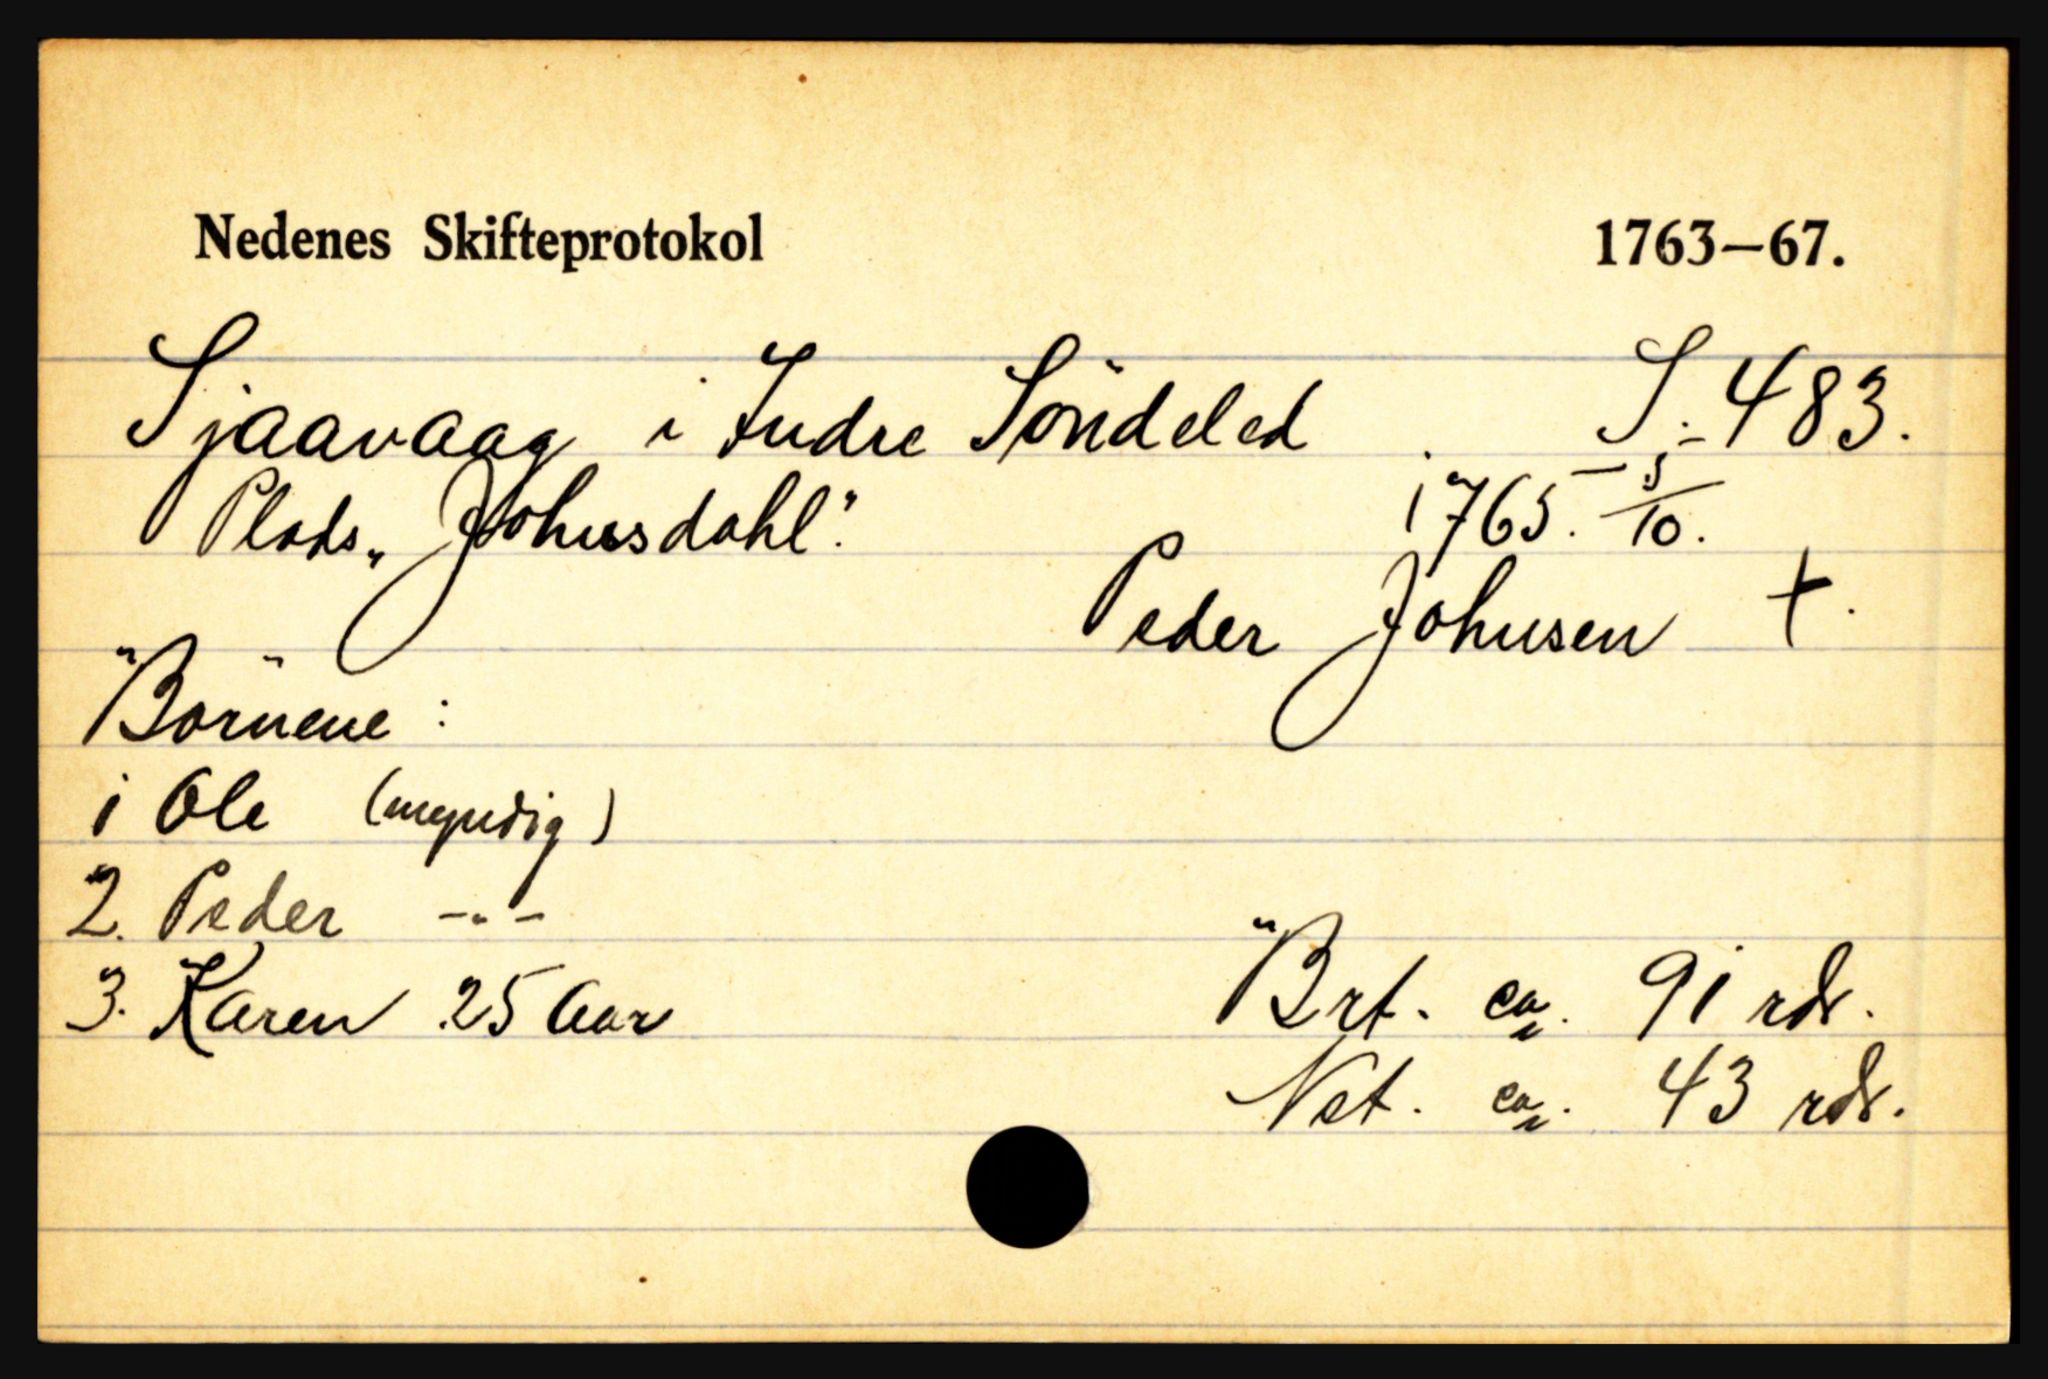 Nedenes Skifteprotokol 1763–67.
Sjaavaag i Indre Söndeled S. 483.
Plads „Johnsdahl". 1765. 5/10.
Peder Johnsen +.
Börnene:
1 Ole (myndig)
2. Peder -"-
3. Karen 25 Aar
Brt. ca. 91 rdr.
Net. ca. 43 rdr.